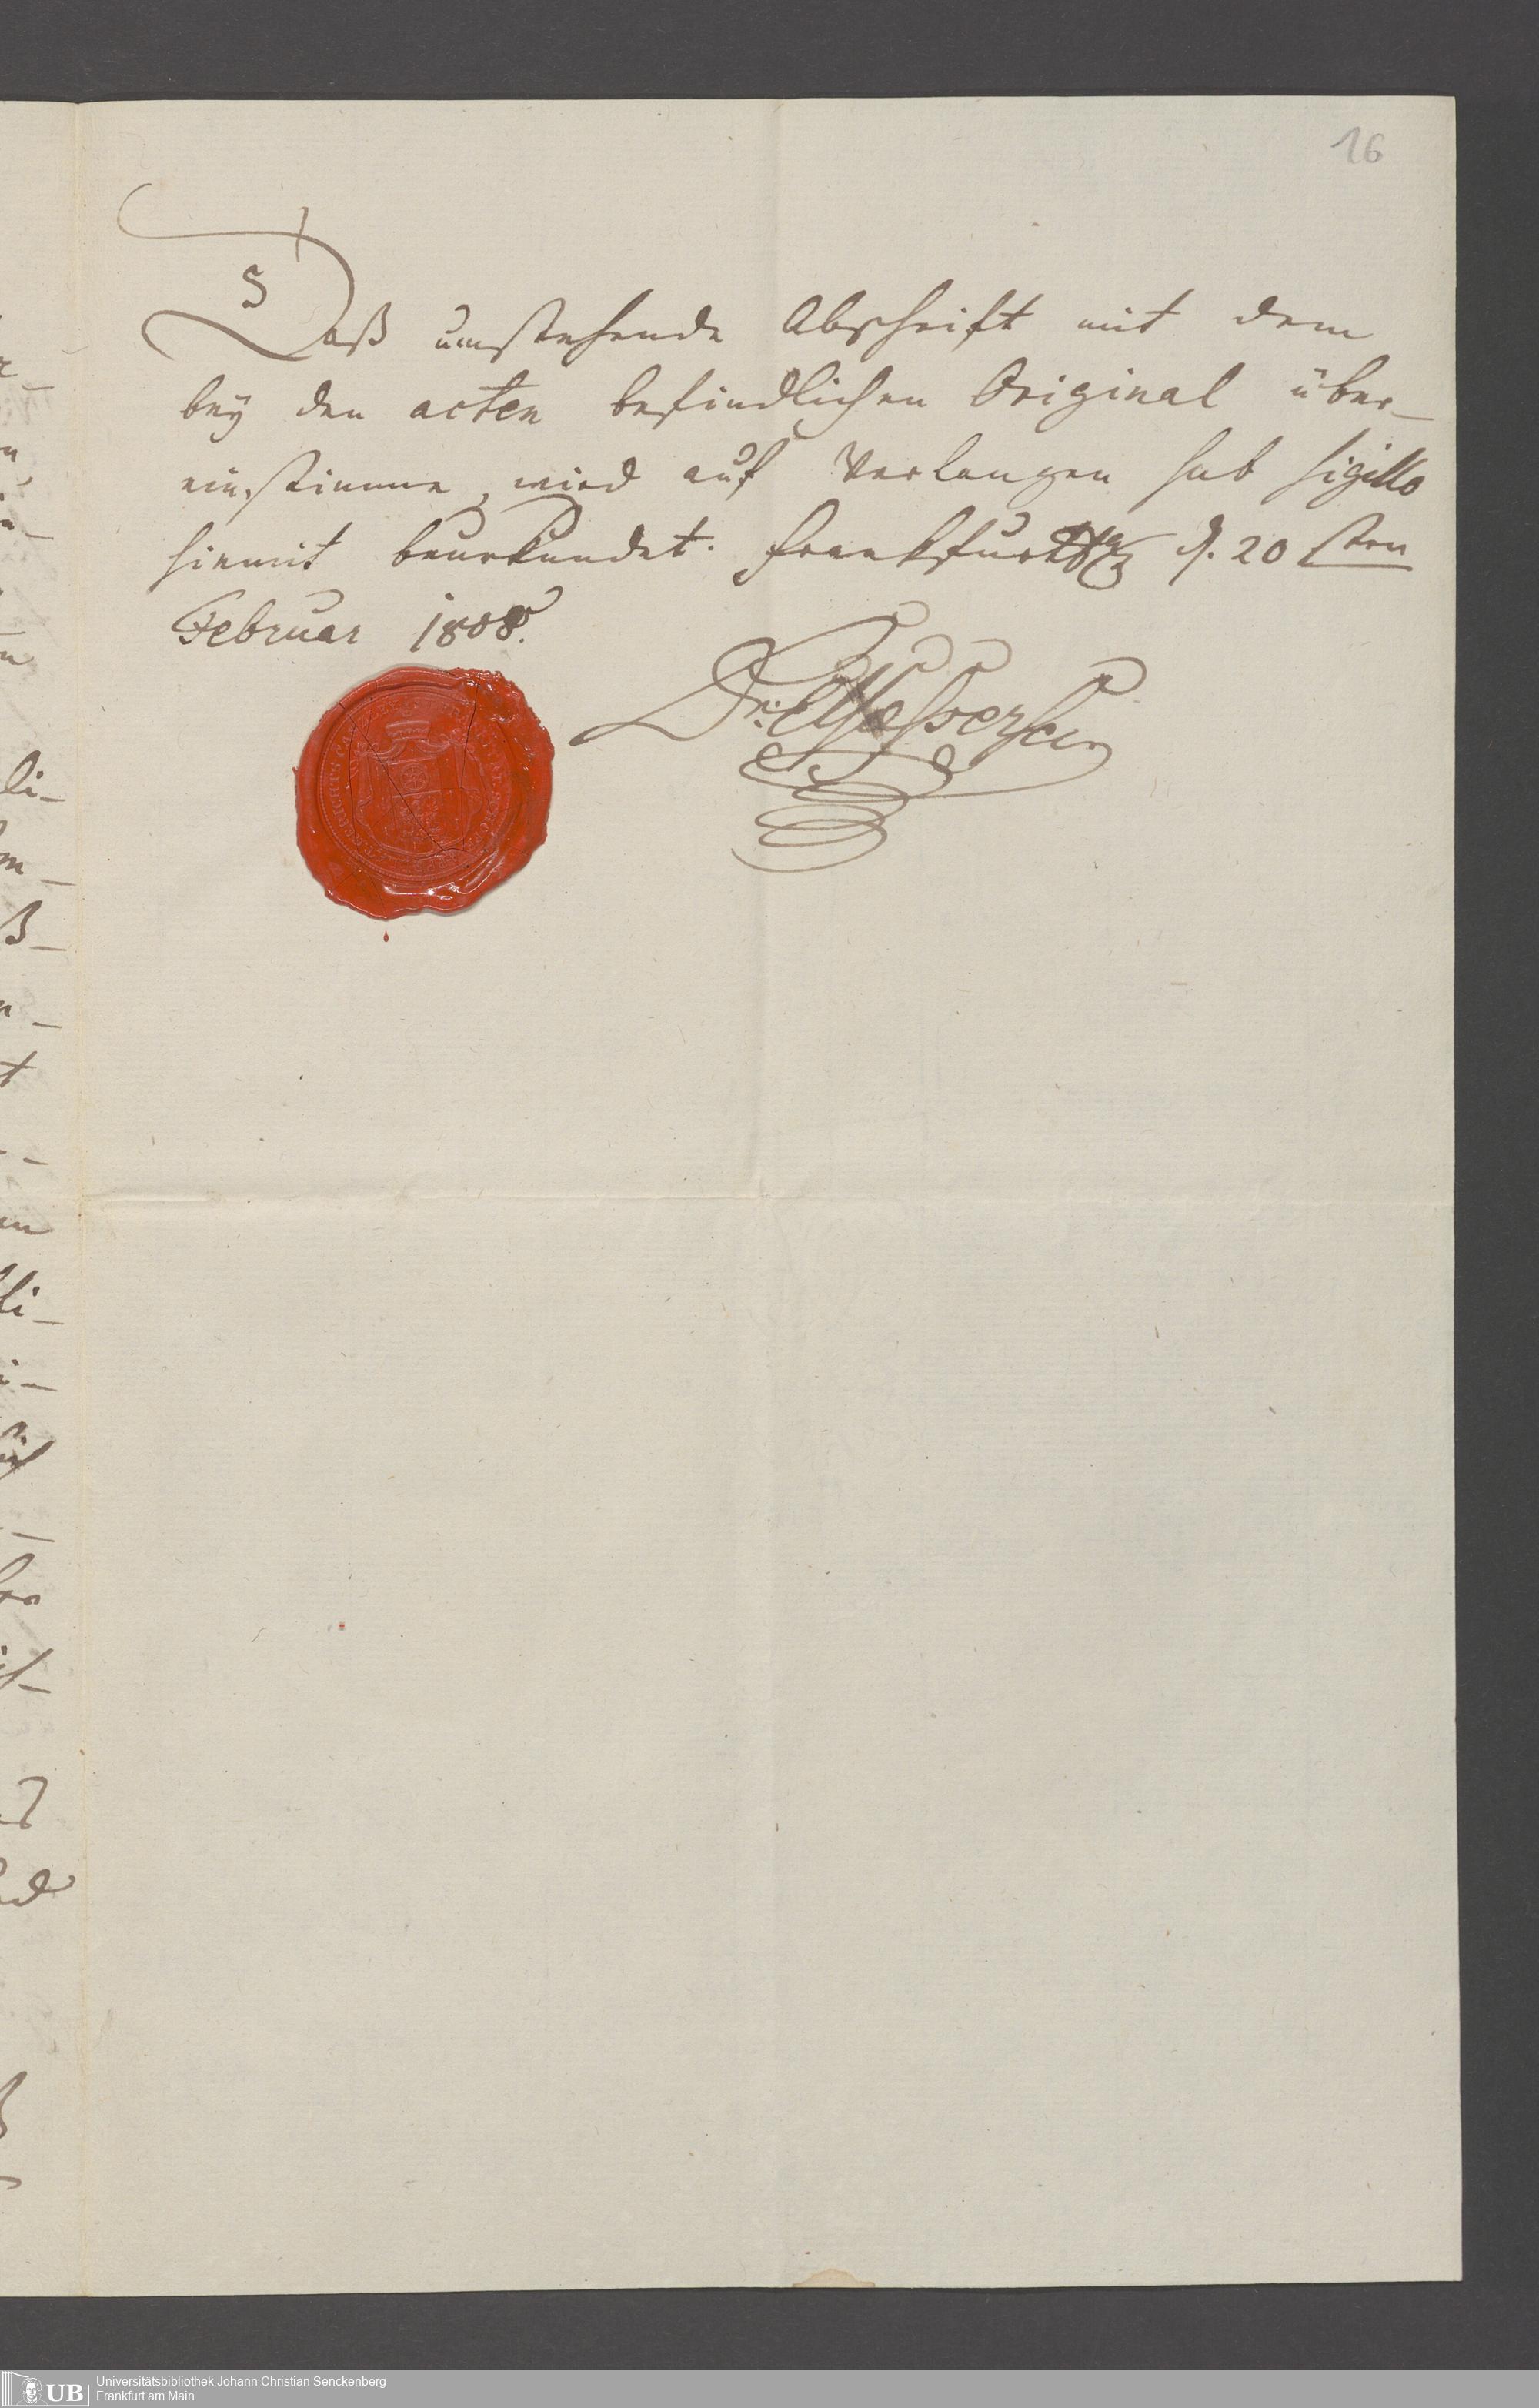 16
Daß umstehende Abschrift mit dem
bey den acten befindlichen Original über-
einstimme, wird auf Verlangen sub sigillo
hiemit beurkundet. Frankfurt d. 20 sten
Februar 1808.
Dr.
UB
Universitätsbibliothek Johann Christian Senckenberg
Frankfurt am Main